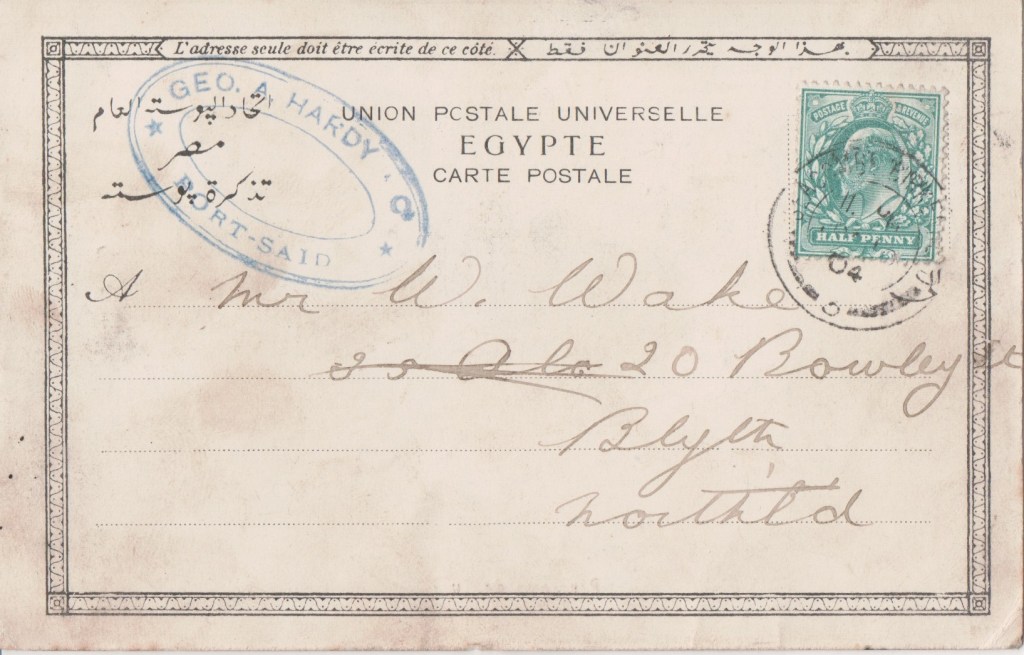 L'adresse seule doit être écrite de ce côté. بهذا الوجه يحرر العنوان فقط
GEO. A. HARDY & Cº
PORT-SAID
اتحاد البوسته العام
مصر
تذكرة بوسته
UNION POSTALE UNIVERSELLE
EGYPTE
CARTE POSTALE
POSTAGE REVENUE
HALF PENNY
04
A Mr W. Wake
20 Bowley St
Blyth
Northl'd